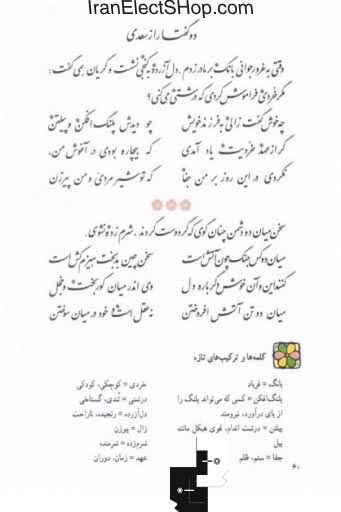 IranElectShop.com
دو گفتار از سعدی
وقتی به غرور جوانی بانگ بر مادر زدم. دل آزرده به کنجی نشست و گریان همی گفت:
مگر خردی فراموش کردی که درشتی می کنی؟
چه خوش گفت زالی به فرزند خویش چو دیدش پلنگ افکن و پیلتن
گر از عهد خردیت یاد آمدی که بیچاره بودی در آغوش من،
نکردی در این روز بر من جفا که تو شیر مردی و من پیرزن
سخن میان دو دشمن چنان گوی که گر دوست گردند، شرم زده نشوی.
میان دو کس جنگ چون آتش است سخن چین بدبخت هیزم کش است
کنند این و آن خوش دگر باره دل وی اندر میان کوربخت و خجل
میان دو تن آتش افروختن نه عقل است خود در میان سوختن
کلمه‌ها و ترکیب‌های تازه
بانگ = فریاد خردی = کوچکی، کودکی
پلنگ‌افکن = کسی که می‌تواند پلنگ را درشتی = تندی، گستاخی
از پای درآورد، نیرومند دل‌آزرده = رنجیده، ناراحت
پیلتن = درشت اندام، قوی هیکل مانند زال = پیرزن
پیل شرم‌زده = شرمنده
جفا = ستم، ظلم عهد = زمان، دوران
۶۰